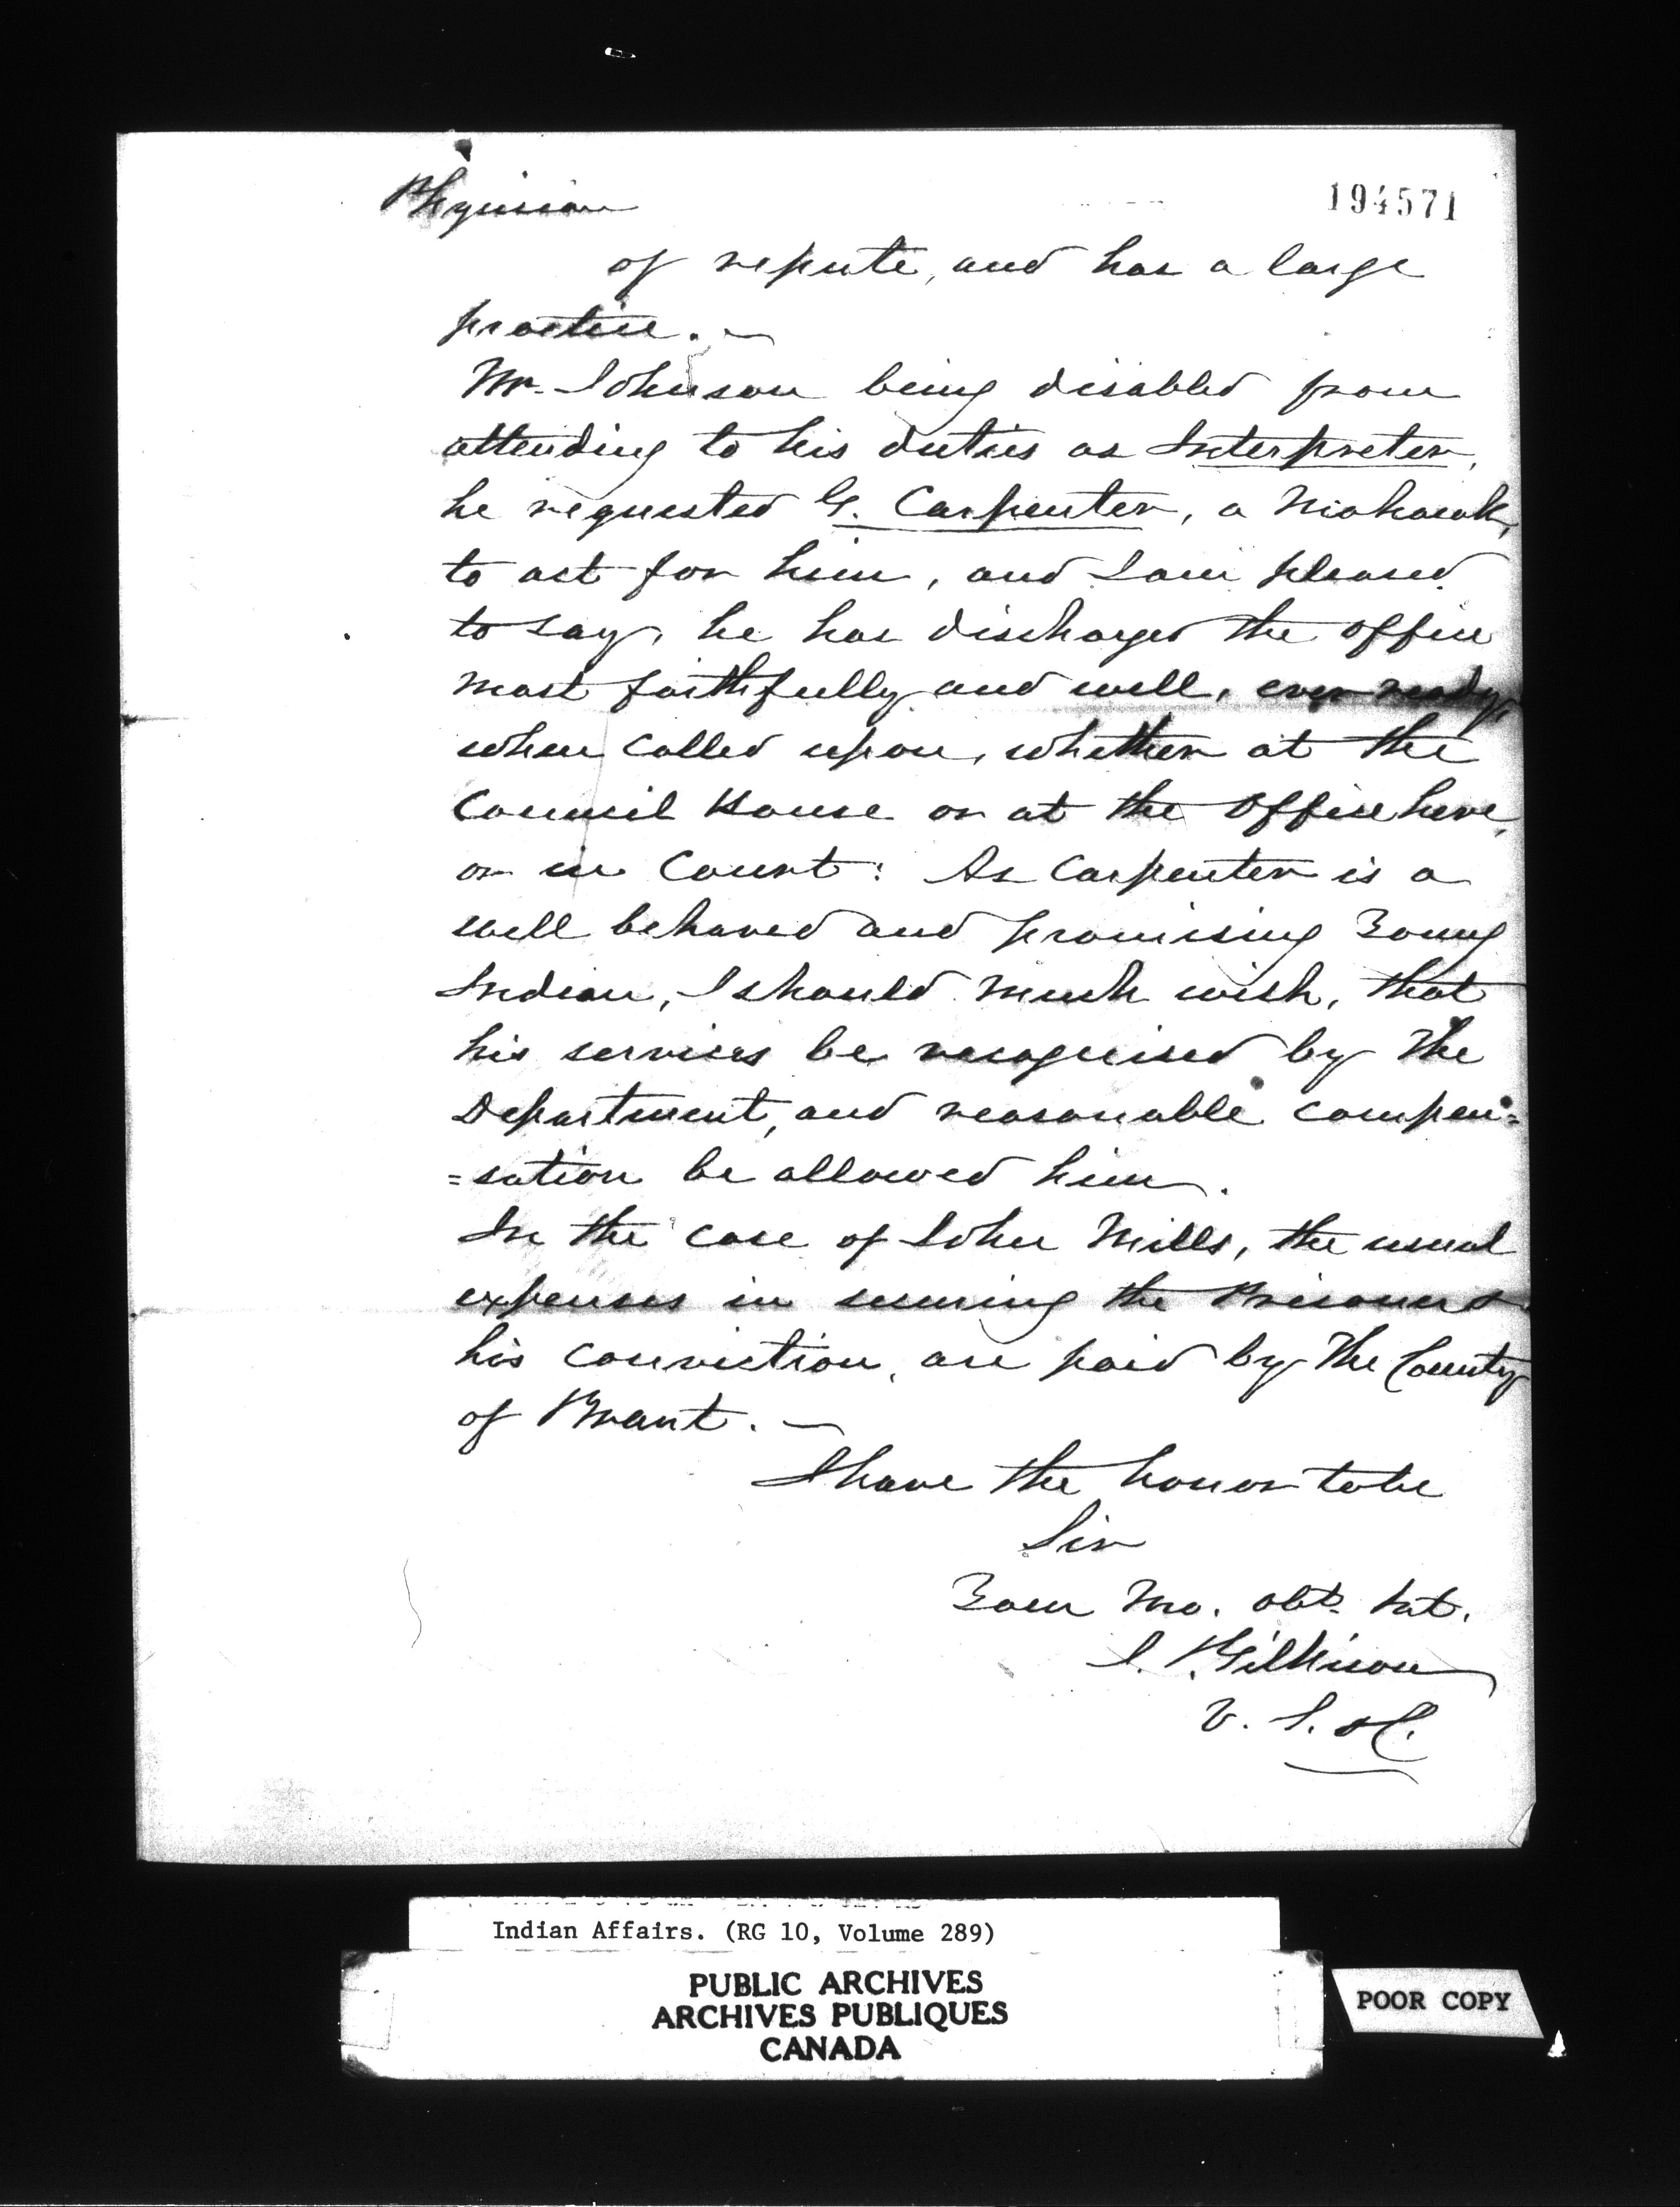 Physician
194571
of repute, and has a large
practice. —
Mr. Johnson being disabled from
attending to his duties as Interpreter,
he requested G. Carpenter, a Mohawk,
to act for him, and I am pleased
to say, he has discharged the office
most faithfully and well, ever ready,
when called upon, whether at the
Council House or at the Office here,
or in Court: As Carpenter is a
well behaved and promising Young
Indian, I should much wish, that
his services be recognised by the
Department, and reasonable compen=
=sation be allowed him.
In the case of John Mills, the usual
expenses in securing the Prisoner &
his conviction, are paid by the County
of Brant. —
I have the honor to be
Sir
Your Mo. obt. Svt.
J. Gilkison
V. S. &C.
Indian Affairs. (RG 10, Volume 289)
PUBLIC ARCHIVES
ARCHIVES PUBLIQUES
CANADA
POOR COPY